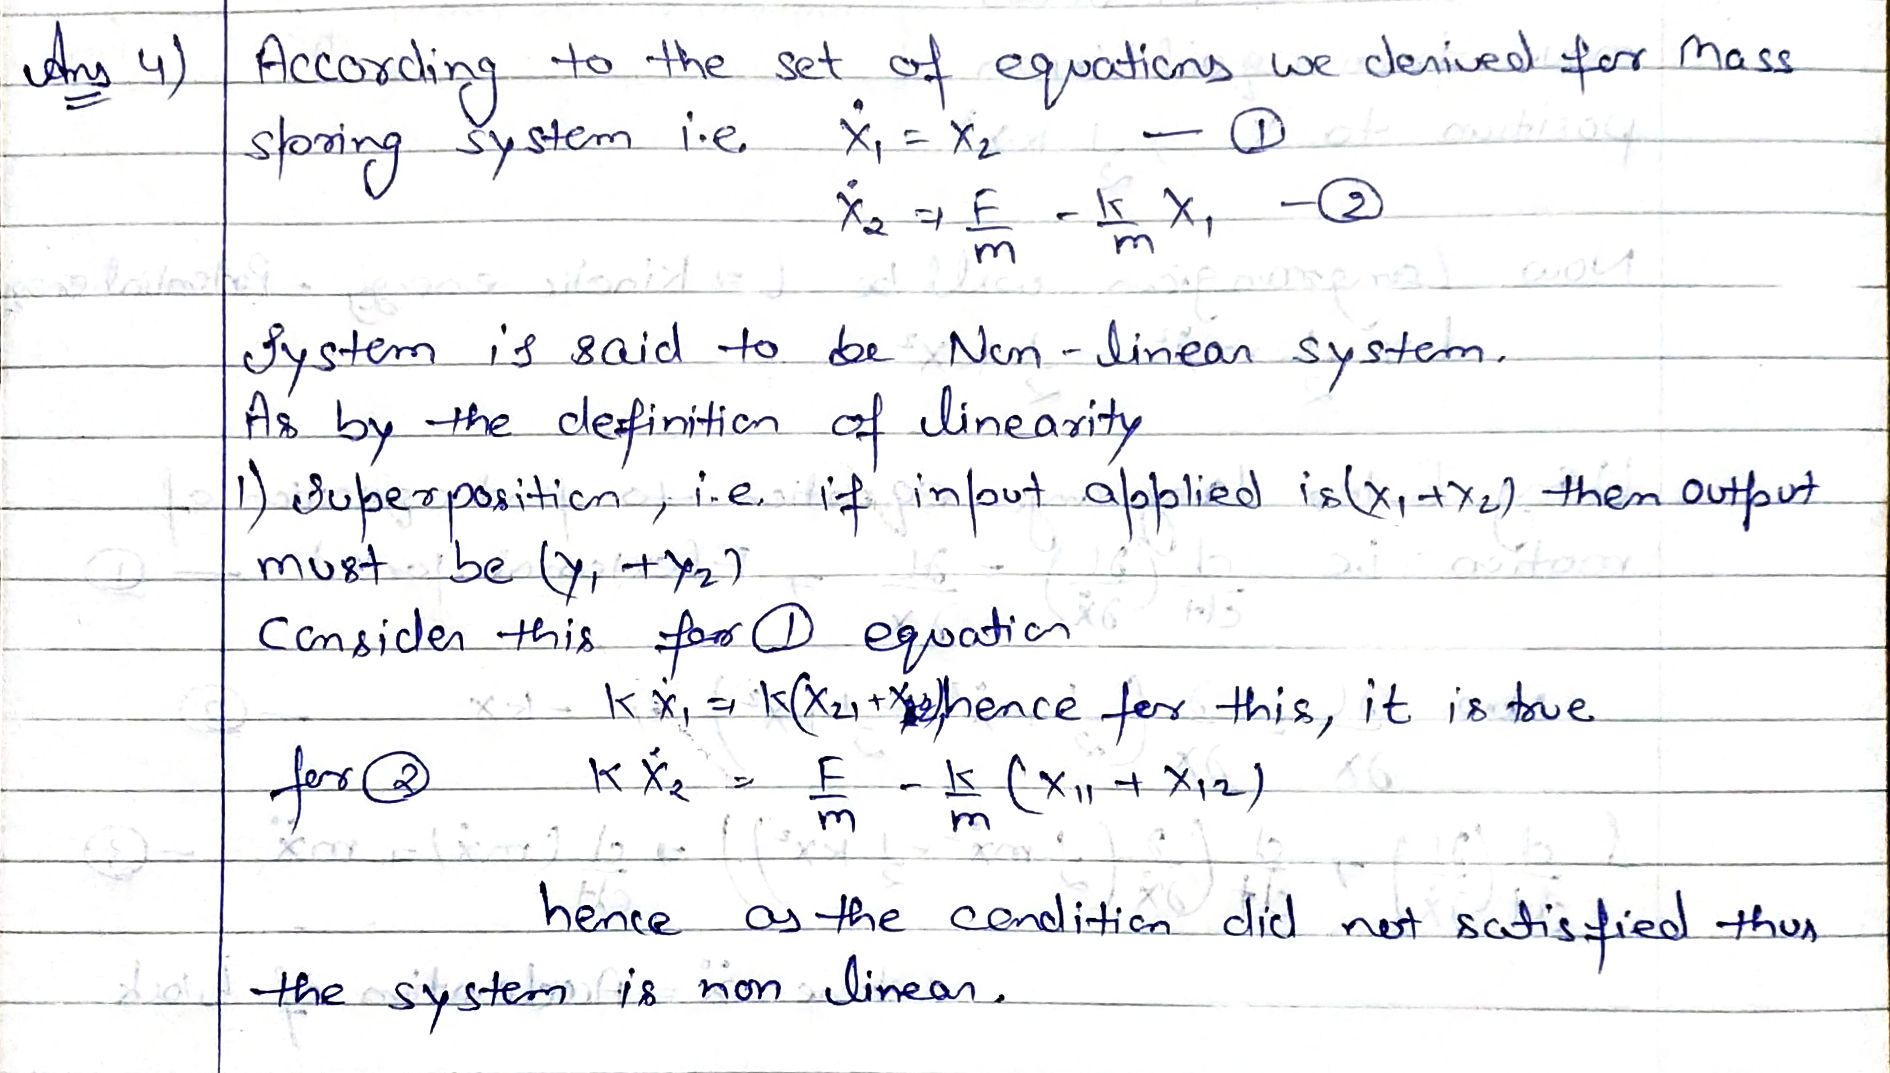 Ans 4) According to the set of equations we derived for Mass
spring system i.e. Ẋ₁ = X₂ — ①
Ẋ₂ = F/m - k/m X₁ - ②
System is said to be Non-linear system.
As by the definition of linearity
1) Superposition, i.e. if input applied is (x₁ + x₂) then output
must be (y₁ + y₂)
Consider this for ① equation
K Ẋ₁ = K(X₂₁ + hence for this, it is true
for ② K Ẋ₂ = F/m - k/m (X₁₁ + X₁₂)
hence as the condition did not satisfied thus
the system is non linear.